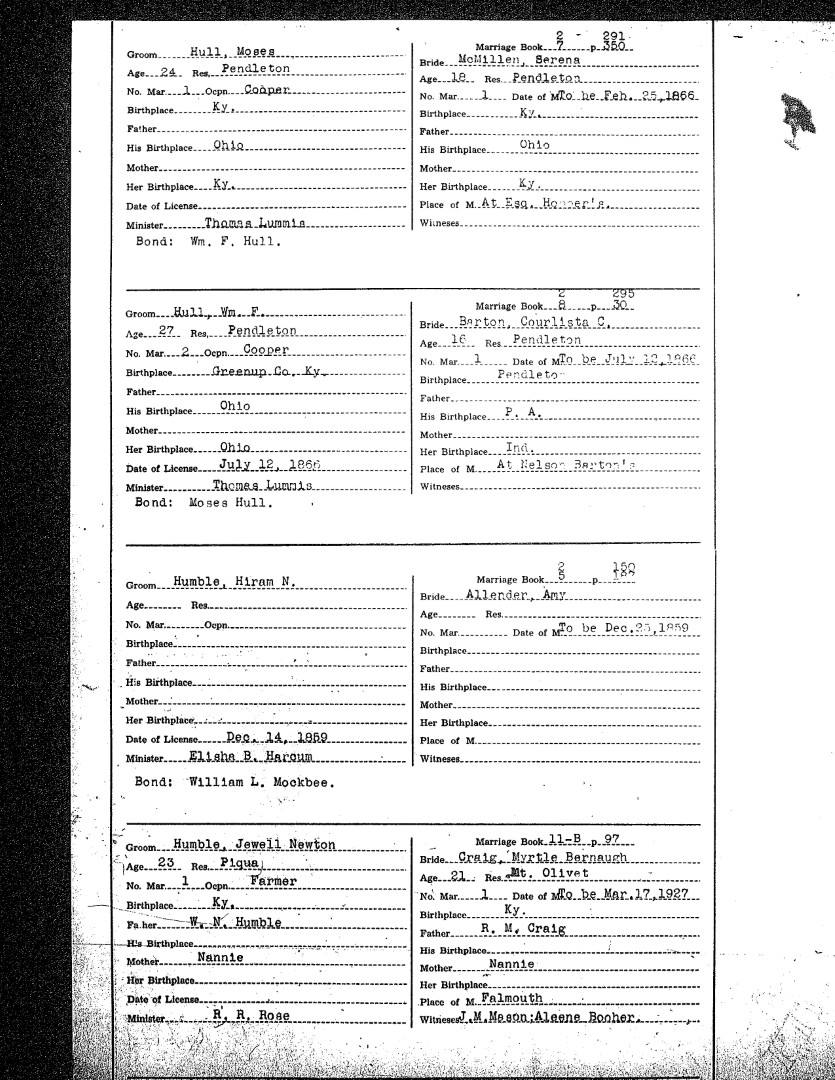 2 - 291
Groom Hull, Moses
Marriage Book 7 p. 350
Age 24 Res. Pendleton
Bride McMillen, Serena
No. Mar 1 Ocpn. Cooper
Age 18 Res Pendleton
Birthplace Ky.
No. Mar. 1 Date of M To be Feb. 25,1866
Father
Birthplace Ky.
His Birthplace Ohio
Father
Mother
His Birthplace Ohio
Her Birthplace Ky.
Mother
Date of License
Her Birthplace Ky.
Minister Thomas Lummis
Place of M. At Esq.
Bond: Wm. F. Hull.
Witneses
2 295
Groom Hull, Wm. F.
Marriage Book 8 p 30
Age 27 Res. Pendleton
Bride Barton, Courlista C.
No. Mar. 2 Ocpn. Cooper
Age 16 Res Pendleton
Birthplace Greenup Co. Ky.
No. Mar. 1 Date of M To be July 12,1866
Father
Birthplace Pendleton
His Birthplace Ohio
Father
Mother
His Birthplace P. A.
Her Birthplace Ohio
Mother
Date of License July 12, 1866
Her Birthplace Ind.
Minister Thomas Lummis
Place of M. At Nelson Barton's
Bond: Moses Hull.
Witneses
2 150
Groom Humble, Hiram N.
Marriage Book 5 p.
Age Res
Bride Allender, Amy
No. Mar. Ocpn.
Age Res
Birthplace
No. Mar. Date of M To be Dec.25,1859
Father
Birthplace
His Birthplace
Father
Mother
His Birthplace
Her Birthplace
Mother
Date of License Dec. 14, 1859
Her Birthplace
Minister Elisha B. Harcum
Place of M.
Bond: William L. Mockbee.
Witneses
Groom Humble, Jewell Newton
Marriage Book 11-B p. 97
Age 23 Res. Piqua
Bride Craig, Myrtle Bernaugh
No. Mar 1 Ocpn Farmer
Age 21 Res. Mt. Olivet
Birthplace Ky.
No. Mar. 1 Date of M To be Mar.17,1927
Father W. N. Humble
Birthplace Ky.
His Birthplace
Father R. M. Craig
Mother Nannie
His Birthplace
Her Birthplace
Mother Nannie
Date of License
Her Birthplace
Minister R. R. Rose
Place of M. Falmouth
Witneses J.M.Mason;Aleene Booher.